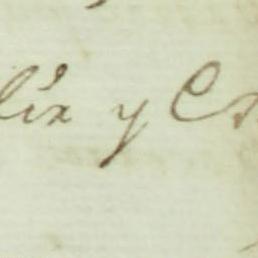 lix y C